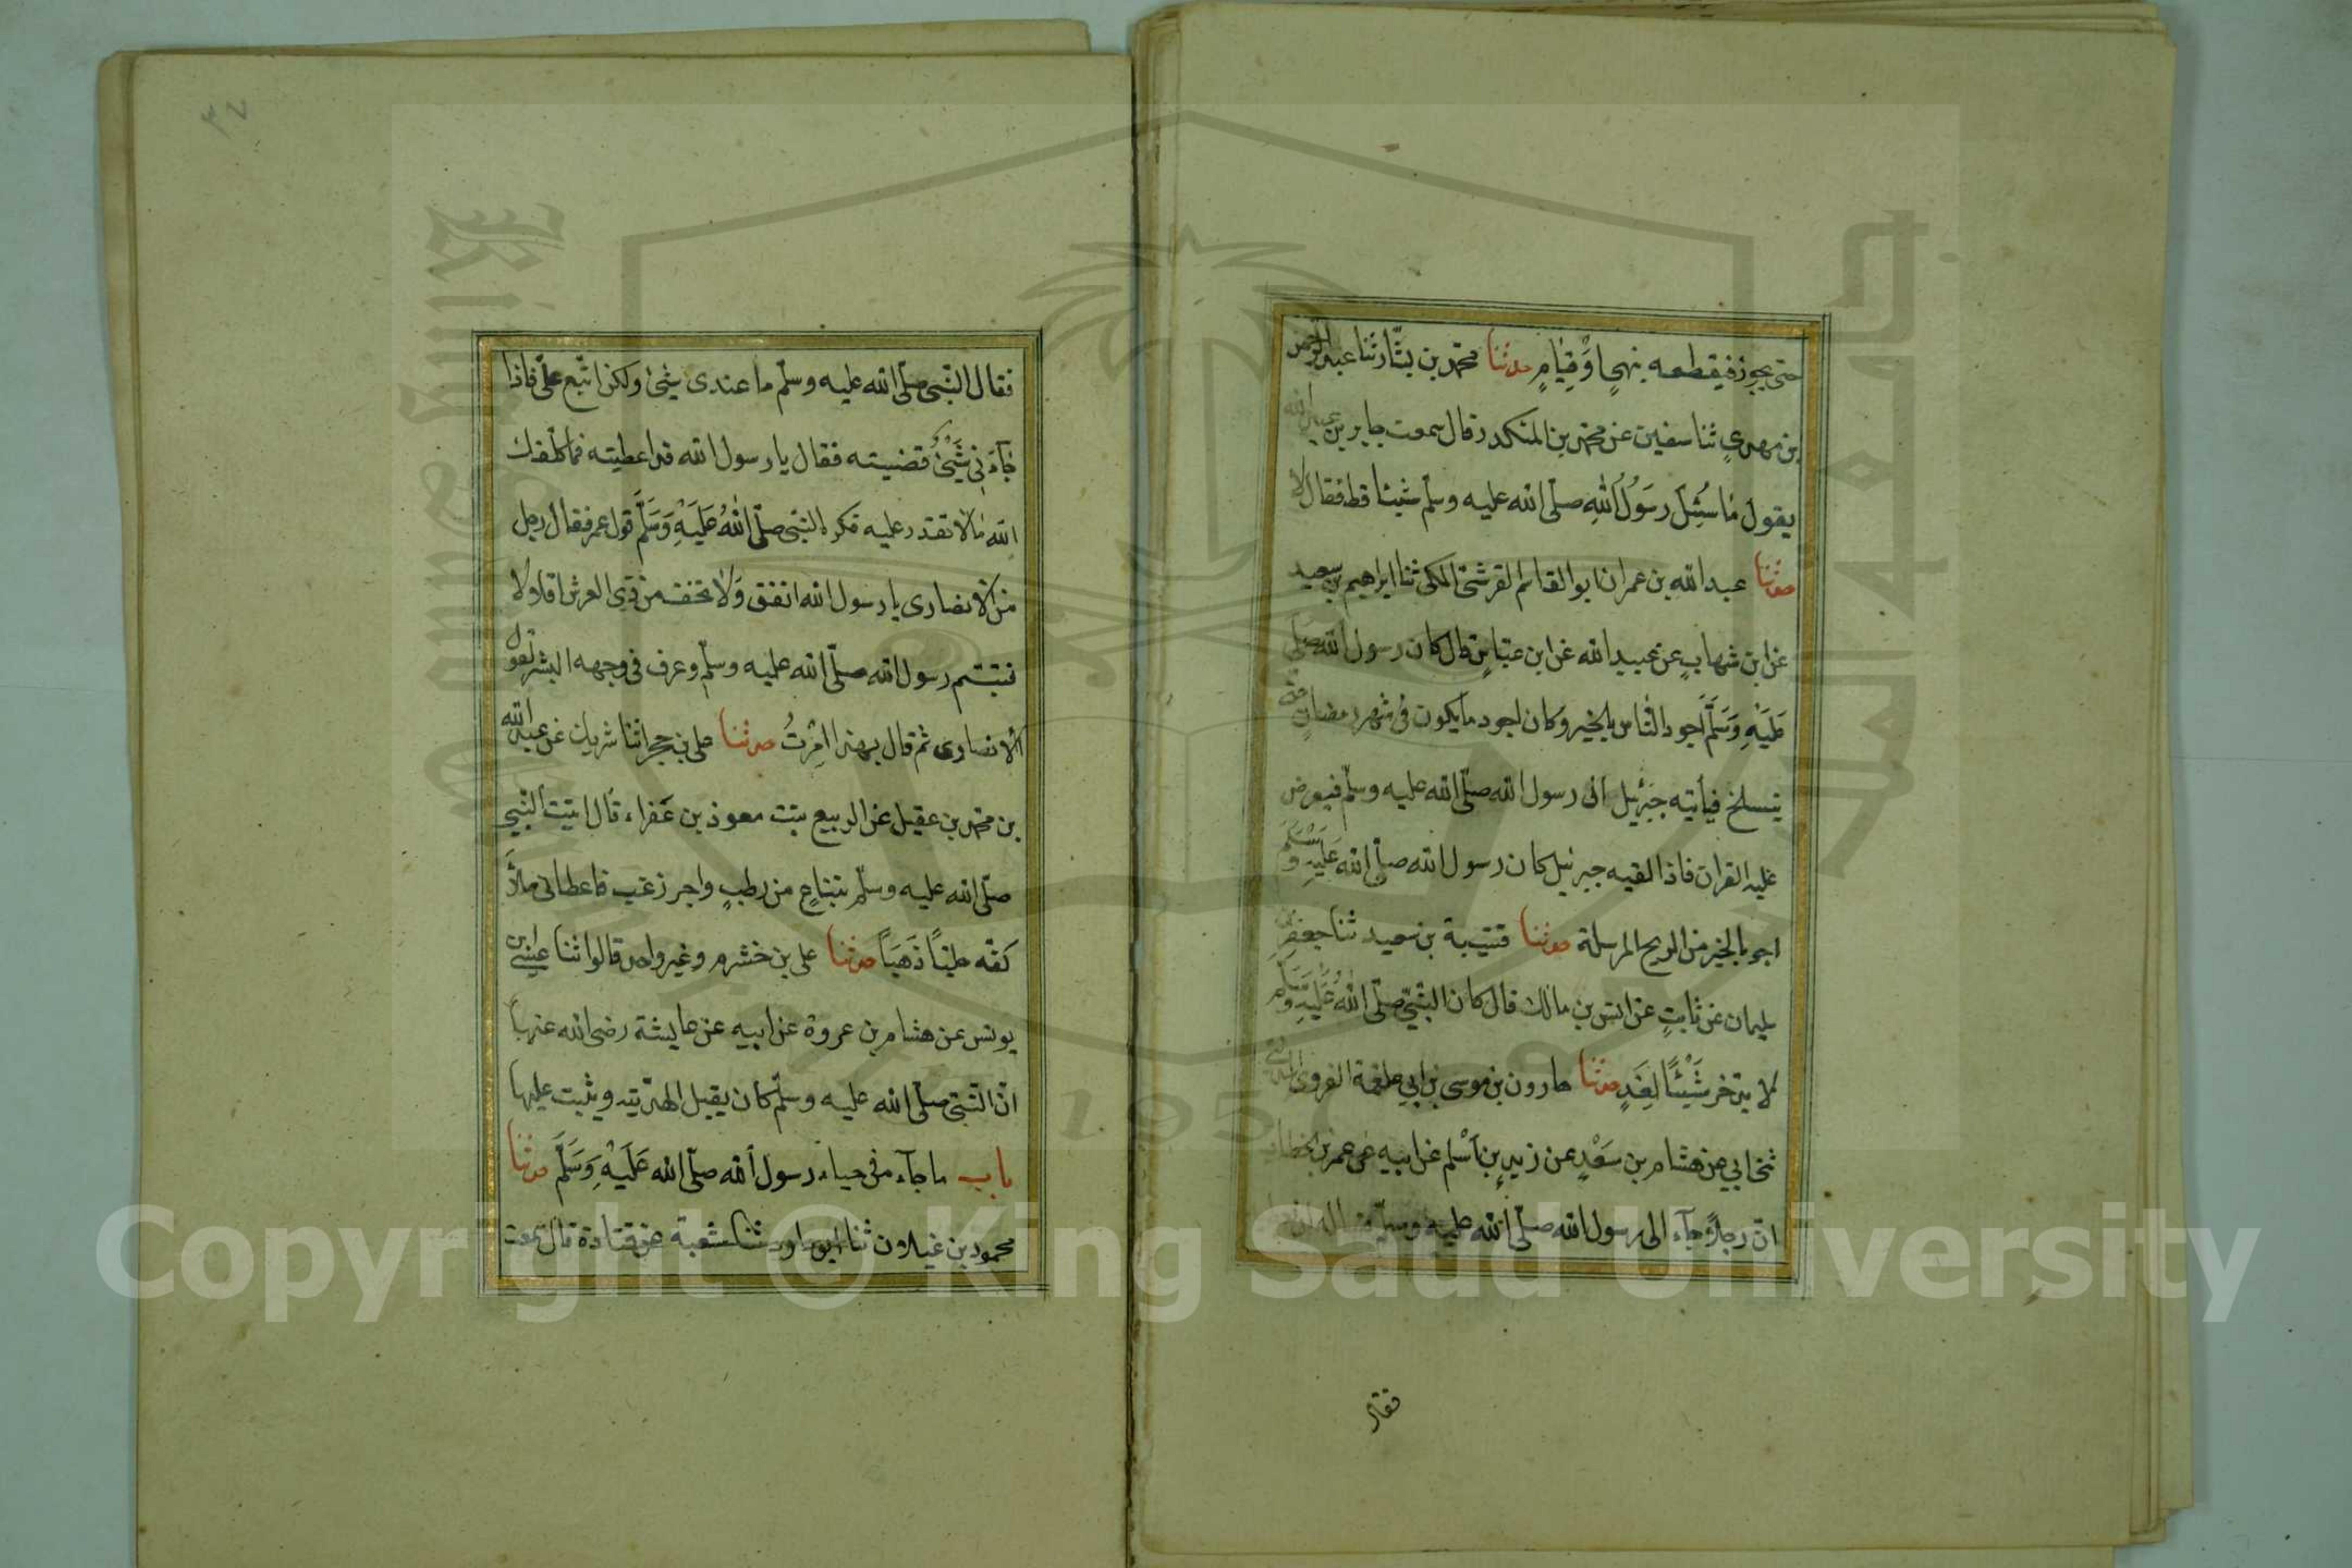 حتى يجوز فيقطعه بنهي اَوْ قِيَامٍ حدثنا محمّد بن بشّار ثنا عبد الرّحمن
بن مهدي ثنا سفين عن محمّد بن المنكدر قال سمعت جابر بن عبد الله
يقول مَا سُئِلَ رَسُولُ اللهِ صلّى الله عليه وسلّم شيئا قط فقال لا
حدثنا عبد الله بن عمران ابو القاسم القرشيّ المكي ثنا ابراهيم بن سعيد
عن ابن شهابٍ عن عبيد الله عن ابن عبّاسٍ قال كان رسول الله صلى
عَلَيْهِ وَسَلَّمَ اجود النّاس بالخير وكان اجود ما يكون في شهر رمضان حتى
ينسلخ فيأتيه جبرئيل الى رسول الله صلّى الله عليه وسلّم فيعرض
عليه القران فاذا لقيه جبرئيل كان رسول الله صلّى الله عَلَيْهِ وَسَلَّمَ
اجود بالخير من الريح المرسلة حدثنا قتيبة بن سعيد ثنا جعفر بن
سليمان عن ثابتٍ عن انس بن مالك قال كان النّبيّ صلّى اللهُ عَلَيْهِ وَسَلَّم
لا يدّخر شَيْئًا لِغَدٍ حدثنا هارون بن موسى بن ابي علقمة الفروي المدني
ثني ابي عن هشام بن سَعْدٍ عن زيدِ بن اَسْلم عن ابيه عن عمر بن الخطاب
انّ رجلاً جآء الى رسول الله صلّى الله عليه وسلّم فسأله ان
فقال
٣٤
فقال النّبيّ صلّى الله عليه وسلّم ما عندي شيئ ولكن ابتع علىّ فاذا
جآءني شَيْئٌ قضيته فقال يا رسول الله قد اعطيته فما كلّفك
الله مَا لا تقدر عليه فكره النّبيّ صلّى اللهُ عَلَيْهِ وَسَلَّمَ قول عمر فقال رجل
من الانصارى يا رسول الله انفق وَلا تخف من ذي العرش اقلالا
فتبسّم رسول الله صلّى الله عليه وسلّم وعرف في وجهه البشر لقول
الانصارى ثم قال بهذا اُمِرْتُ حدثنا على بن حجر انا شريك عن عبد الله
بن محمّد بن عقيل عن الربيع بنت معوذ بن عَفراء قال اتيت النّبيّ
صلّى الله عليه وسلّم بقناعٍ من رطبٍ واجر زغب فاعطاني ملأ
كفّه حليّاً ذَهَبَاً حدثنا على بن خشرم وغير واحد قالوا ثنا عيسى ابن
يونس عن هشام بن عروة عن ابيه عن عايشة رضى الله عنها
انّ النّبيّ صلّى الله عليه وسلّم كان يقبل الهديّة ويثيب عليها
باب ما جآء في حياء رسول الله صلّى الله عَلَيْهِ وَسَلَّمَ حدثنا
محمود بن غيلان ثنا ابو داود ثنا شعبة عن قتادة قال سمعت
Copyright © King Saud University
1957